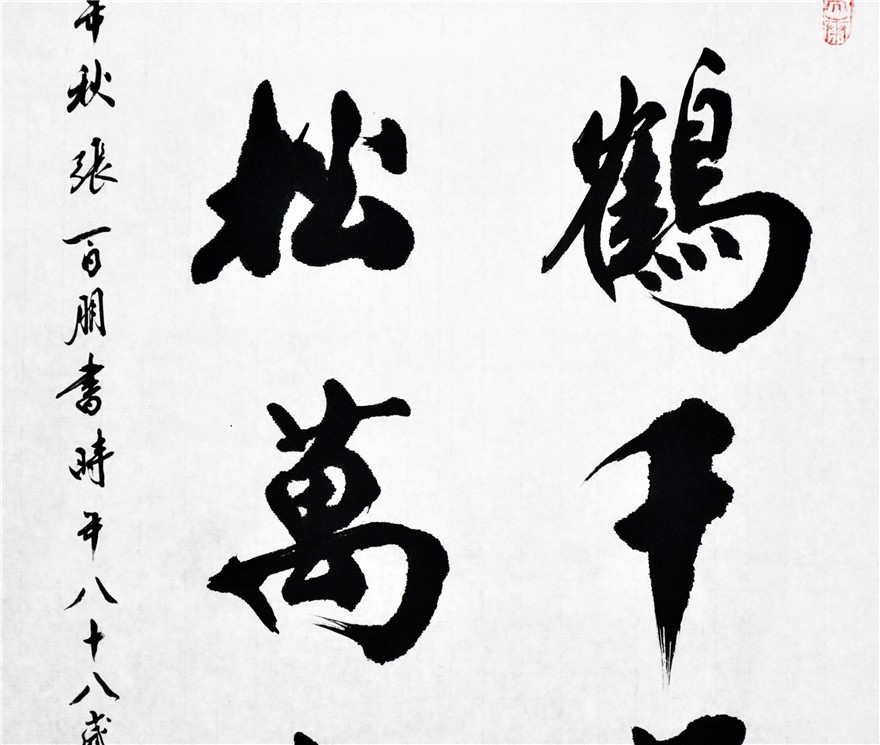 鶴千
松萬
年秋張百朋書時年八十八歲